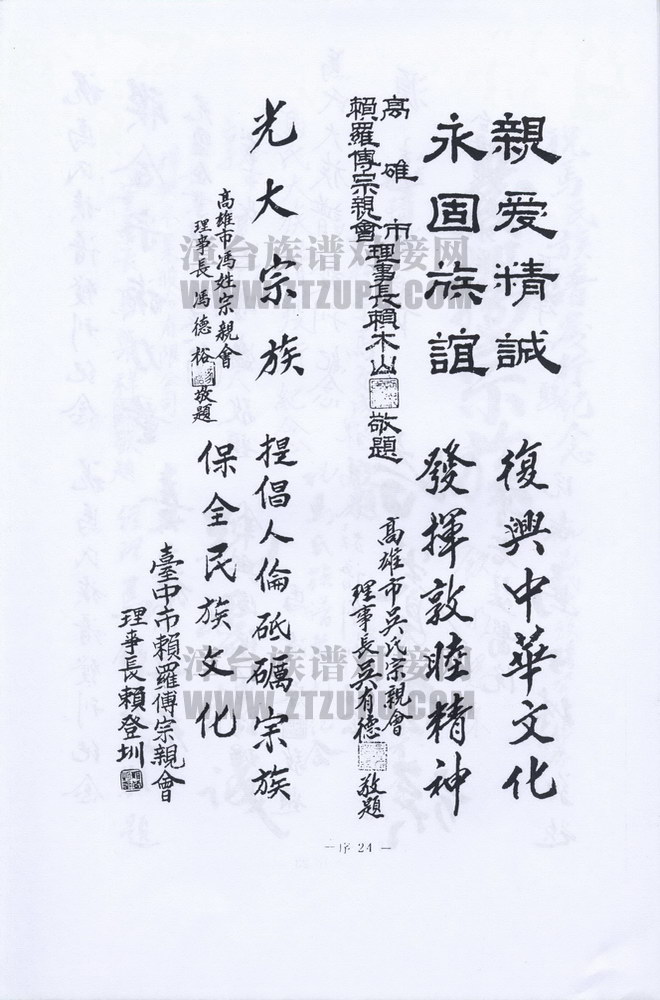 親愛精誠
永固族誼
高雄市
賴羅傅宗親會理事長賴木山敬題
光大宗族
高雄市馮姓宗親會
理事長馮德裕敬題
復興中華文化
發揮敦睦精神
高雄市吳氏宗親會
理事長吳有德敬題
提倡人倫砥礪宗族
保全民族文化
臺中市賴羅傅宗親會
理事長賴登圳
漳台族谱对接网
WWW.ZTZUPU.COM
漳台族谱对接网
WWW.ZTZUPU.COM
—序 24 —